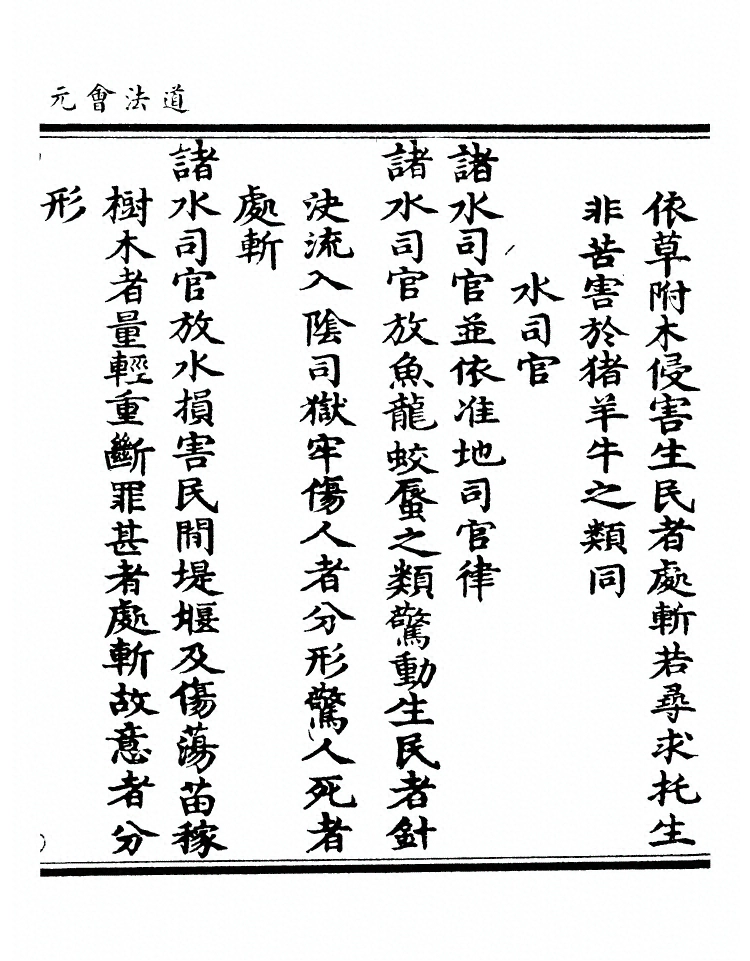 道法會元
依草附木侵害生民者處斬若尋求托生
非苦害於猪羊牛之類同
水司官
諸水司官並依准地司官律
諸水司官放魚龍蛟蜃之類驚動生民者針
決流入陰司獄牢傷人者分形驚人死者
處斬
諸水司官放水損害民間堤堰及傷蕩苗稼
樹木者量輕重斷罪甚者處斬故意者分
形